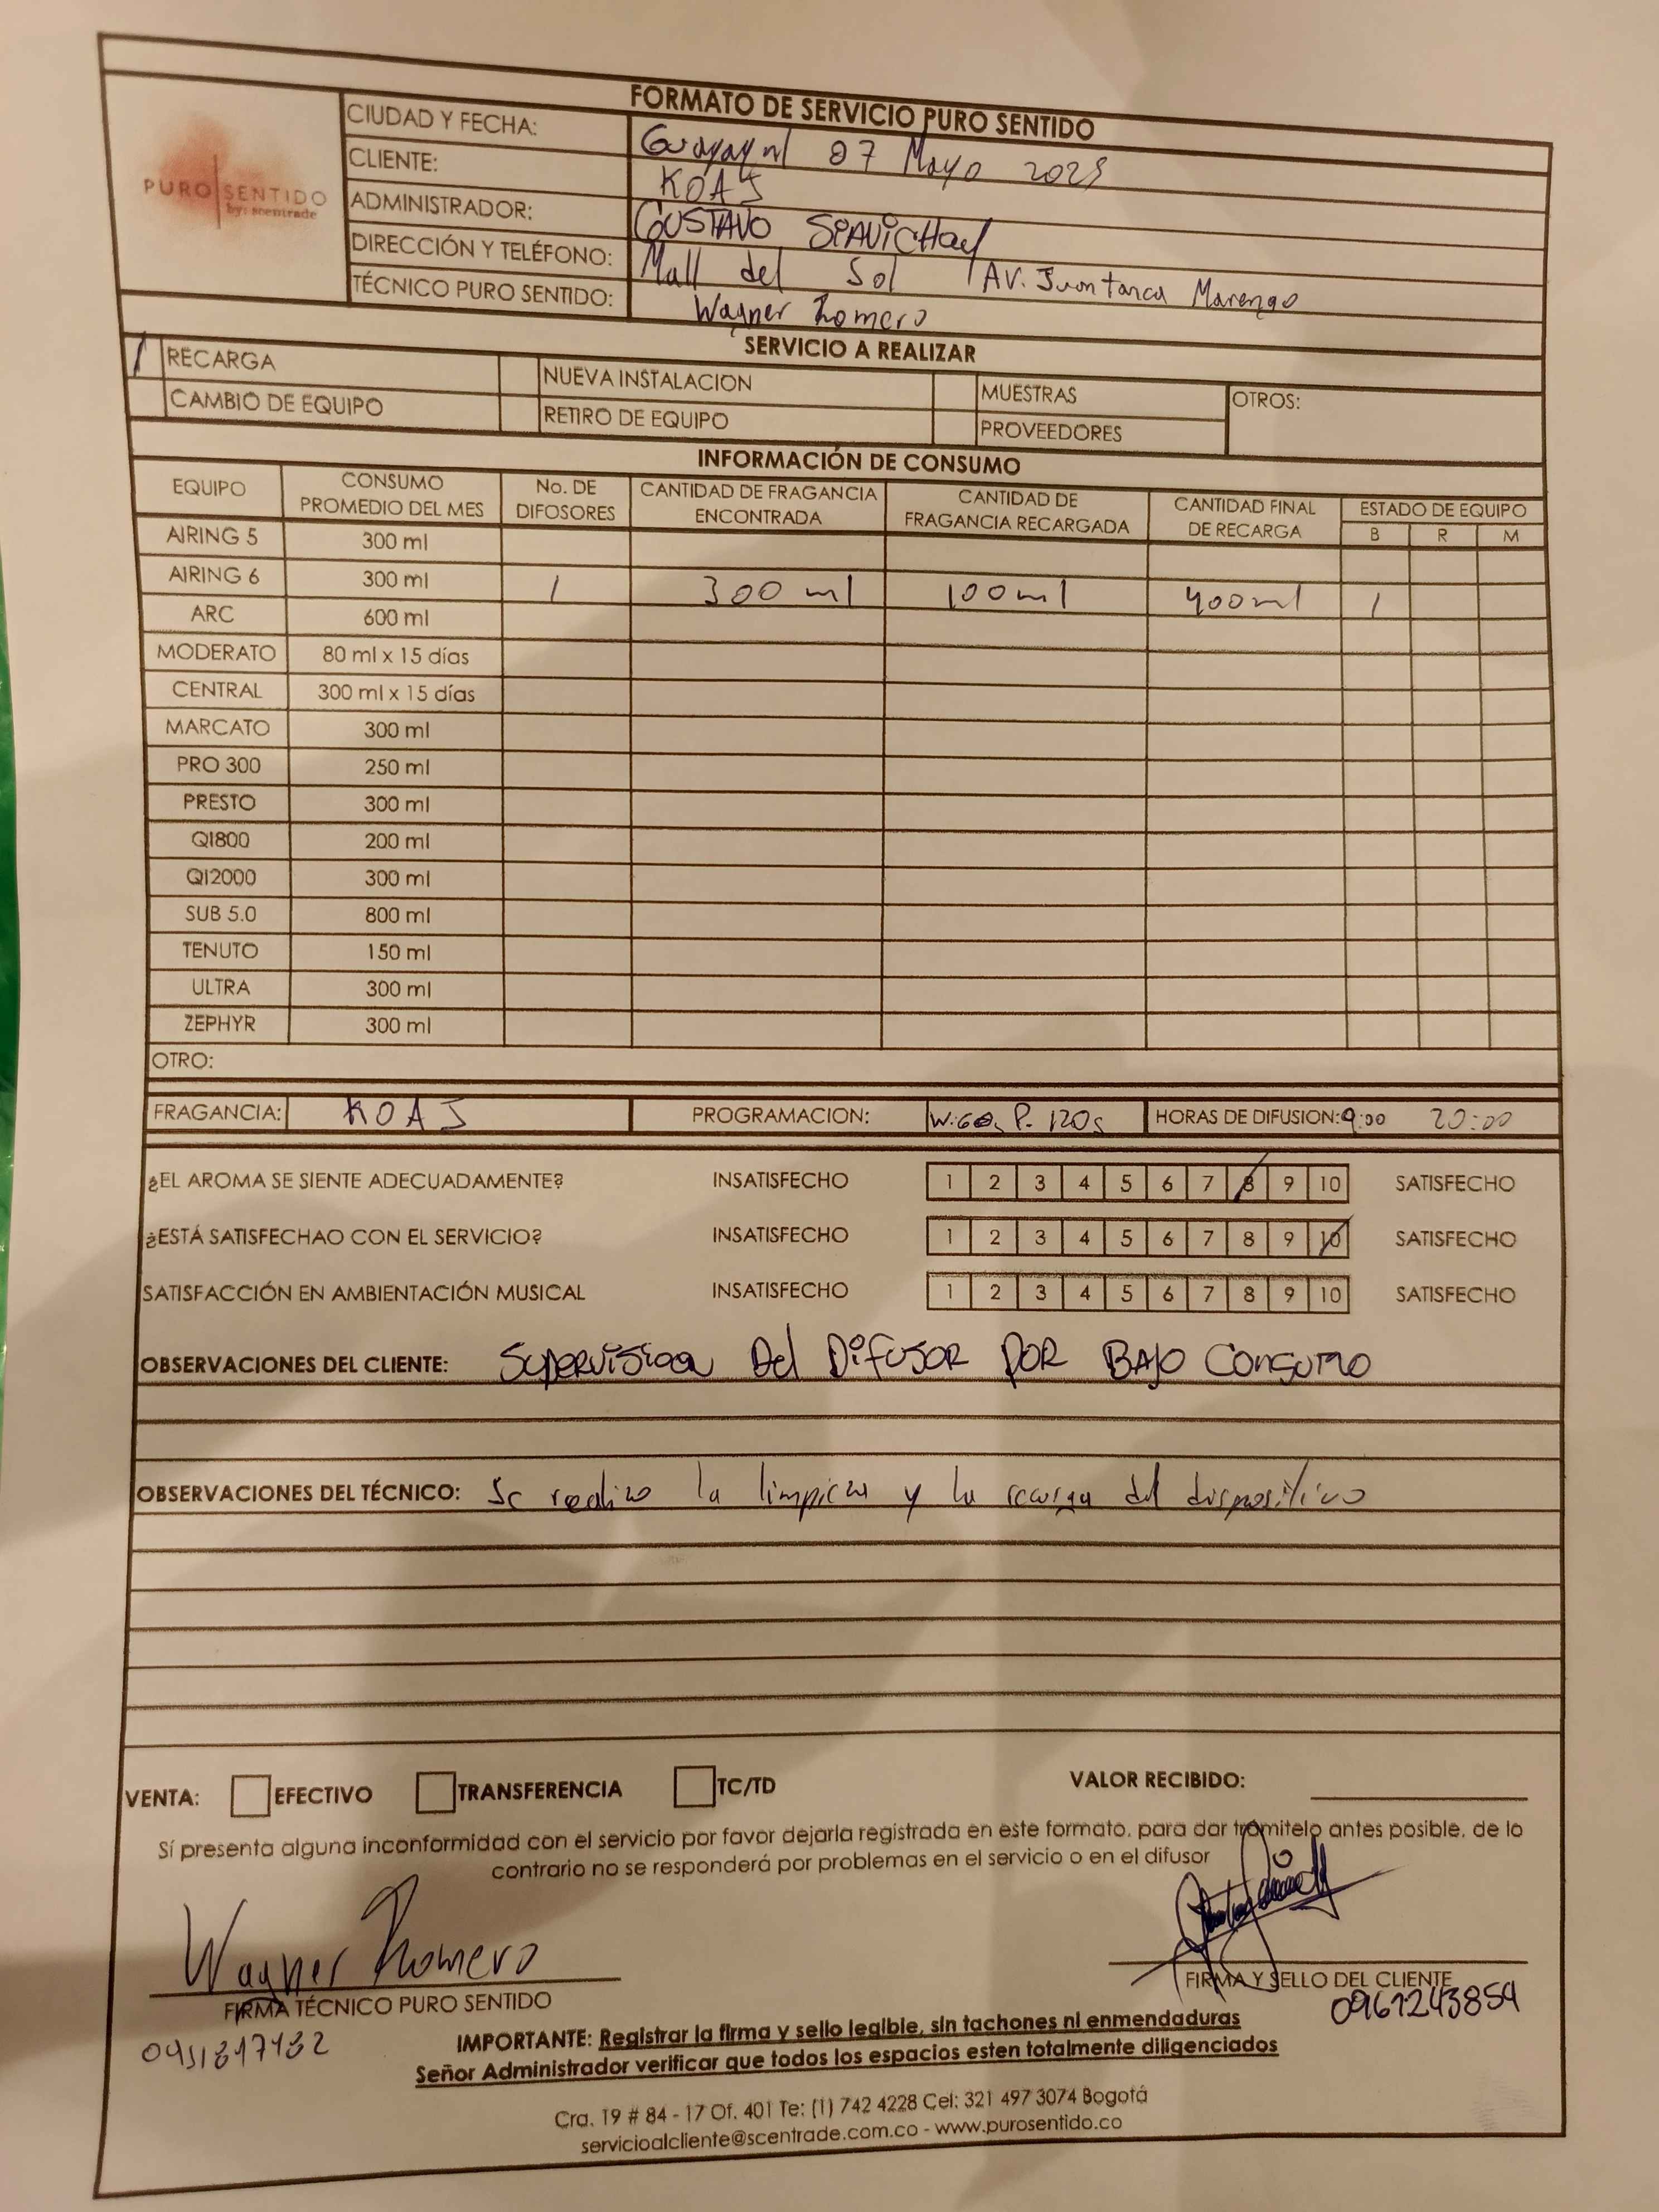 FORMATO DE SERVICIO PURO SENTIDO
PURO SENTIDO
by: scentrade
CIUDAD Y FECHA: Guayaquil 07 Mayo 2025
CLIENTE: KOAJ
ADMINISTRADOR: GUSTAVO
DIRECCIÓN Y TELÉFONO: Mall del Sol / AV. Juan Tanca Marengo
TÉCNICO PURO SENTIDO: Wagner Romero
SERVICIO A REALIZAR
/ RECARGA NUEVA INSTALACION MUESTRAS OTROS:
CAMBIO DE EQUIPO RETIRO DE EQUIPO PROVEEDORES
INFORMACIÓN DE CONSUMO
EQUIPO CONSUMO PROMEDIO DEL MES No. DE DIFOSORES CANTIDAD DE FRAGANCIA ENCONTRADA CANTIDAD DE FRAGANCIA RECARGADA CANTIDAD FINAL DE RECARGA ESTADO DE EQUIPO
B R M
AIRING 5 300 ml
AIRING 6 300 ml 1 300 ml 100 ml 400 ml /
ARC 600 ml
MODERATO 80 ml x 15 días
CENTRAL 300 ml x 15 días
MARCATO 300 ml
PRO 300 250 ml
PRESTO 300 ml
QI800 200 ml
QI2000 300 ml
SUB 5.0 800 ml
TENUTO 150 ml
ULTRA 300 ml
ZEPHYR 300 ml
OTRO:
FRAGANCIA: KOAJ PROGRAMACION: W:60s P. 120s HORAS DE DIFUSION: 9:00 20:00
¿EL AROMA SE SIENTE ADECUADAMENTE? INSATISFECHO 1 2 3 4 5 6 7 8 9 10 SATISFECHO
¿ESTÁ SATISFECHAO CON EL SERVICIO? INSATISFECHO 1 2 3 4 5 6 7 8 9 10 SATISFECHO
SATISFACCIÓN EN AMBIENTACIÓN MUSICAL INSATISFECHO 1 2 3 4 5 6 7 8 9 10 SATISFECHO
OBSERVACIONES DEL CLIENTE: Supervision Del Difusor POR BAJO CONSUMO
OBSERVACIONES DEL TÉCNICO: Se realizo la limpieza y la recarga del dispositivo
VENTA: EFECTIVO TRANSFERENCIA TC/TD VALOR RECIBIDO:
Sí presenta alguna inconformidad con el servicio por favor dejarla registrada en este formato, para dar tramitelo antes posible, de lo
contrario no se responderá por problemas en el servicio o en el difusor
Wagner Romero
FIRMA TÉCNICO PURO SENTIDO
FIRMA Y SELLO DEL CLIENTE
0961243854
IMPORTANTE: Registrar la firma y sello legible, sin tachones ni enmendaduras
Señor Administrador verificar que todos los espacios esten totalmente diligenciados
Cra. 19 # 84 - 17 Of. 401 Te: (1) 742 4228 Cel: 321 497 3074 Bogotá
servicioalcliente@scentrade.com.co - www.purosentido.co